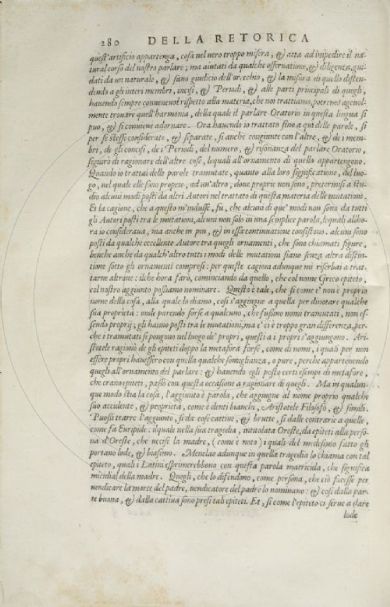 280 DELLA RETORICA
quest'artificio appartenza, cosa nel vero troppo misera, & atta ad impedire il na-
tural corso del nostro parlare; ma aiutati da qualche osseruatione, & diligenza, gui-
dati da un naturale, & sano giudicio dell'orecchio, & la misura di quello disten-
dendo a gli interi membri, incisi, & Periodi, & alle parti principali di quegli,
hauendo sempre conueneuol rispetto alla materia, che noi trattiamo, potremo ageuol-
mente trouare quell'harmonia, della quale il parlare Oratorio in questa lingua si
può, & si conuiene adornare. Ora hauendo io trattato fino a qui delle parole, sì
per se stesse considerate, & separate, sì anche congiunte con l'altre, & de i mem-
bri, de gli concisi, de i Periodi, del numero, & risonanza del parlare Oratorio,
seguirò di ragionare dell'altre cose, lequali all'ornamento di quello appartengono.
Quando io trattai delle parole tramutate, quanto alla loro significatione, del luo-
go, nel quale elle sono proprie, ad un'altro, doue proprie non sono, pretermisi a stu-
dio alcuni modi posti da altri Autori nel trattato di questa materia delle mutationi.
Et la cagione, che a questo m'indusse, fu, che alcuni di que' modi non sono da tutti
gli Autori posti tra le mutationi, alcuni non solo in una semplice parola, laquale allho-
ra io consideraua, ma anche in più, & in esse continuatione consistono. alcuni sono
posti da qualche eccellente Autore tra quegli ornamenti, che sono chiamati figure,
benche anche da qualch'altro tutti i modi delle mutationi siano senza altra distin-
tione sotto gli ornamenti compresi: per queste cagioni adunque mi riserbai a trat-
tarne altroue: il che hora farò, cominciando da quello, che col nome Greco epiteto,
col nostro aggiunto possiamo nominare. Questo è tale, che sì come è noi è proprio
nome della cosa, alla quale lo diamo, così s'aggiugne a quella per dinotare qualche
sua proprietà: onde parendo forse a qualcuno, che fussino nomi tramutati, non es-
sendo proprij; gli hanno posti tra le mutationi, ma c'è troppo gran differenza, per-
che i tramutati si pongono nel luogo de' proprij, questi a i proprij s'aggiungono. Ari-
stotele ragionò de gli epiteti dopo la metafora forse, come di nomi, i quali per non
essere proprij hauessero con quella qualche somiglianza, o pure, perche appartenendo
quegli all'ornamento del parlare; & hauendo egli poste certi esempi di metafore,
che erano epiteti, passò con questa occasione a ragionare di quegli. Ma in qualun-
que modo stia la cosa, l'aggiunto è parola, che aggiugne al nome proprio qualche
suo accidente, & proprietà, come è denti bianchi, Aristotele Filosofo, & simili.
Puossi trarre l'aggiunto, sì da cose cattiue, & brutte, sì dalle contrarie a quelle,
come fa Euripide: ilquale nella sua tragedia, intitolata Oreste, da epiteti alla perso-
na d'Oreste, che uccise la madre, (come è noto) i quali del medesimo fatto gli
portano lode, & biasimo. Menelao adunque in quella tragedia lo chiama con tal
epiteto, quale i Latini esprimerebbono con questa parola matricida, che significa
micidial della madre. Quegli, che lo difendono, come persona, che ciò facesse per
uendicare la morte del padre, uendicatore del padre lo nominano: & così dalla par-
te buona, & dalla cattiua sono presi tali epiteti. Et, sì come l'epiteto ci serue a dare
lode